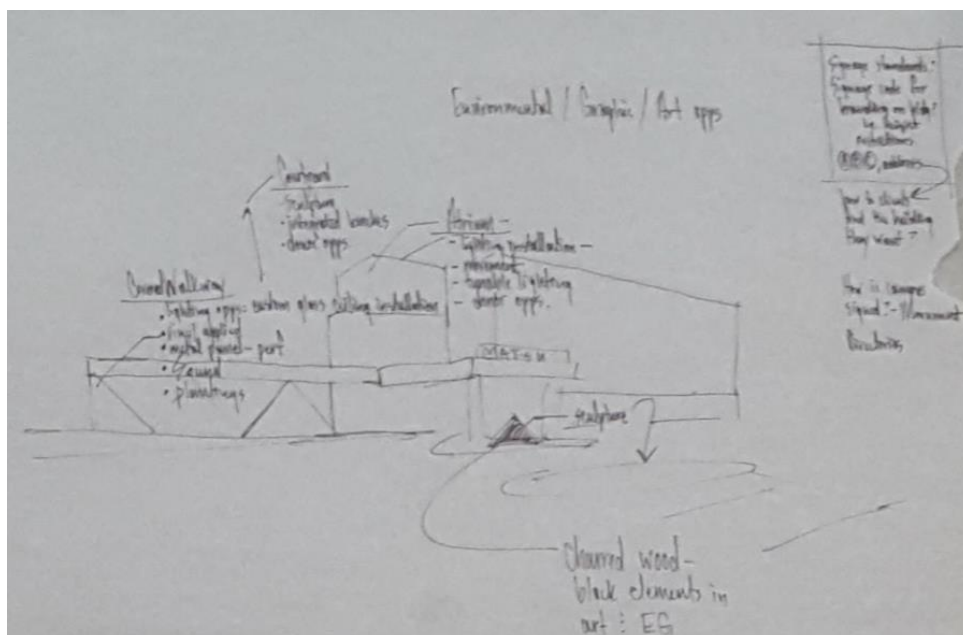 Environmental / Graphic / Art opps
Courtyard
Sculpture
· integrated benches
· donor opps
Atrium -
- lighting installation -
- movement
- tunable lighting
- donor opps.
Covered Walkway
· lighting opps - custom glass ceiling installation
· vinyl applied
· metal panel - perf
· plantings
sculpture
charred wood -
black elements in
art : EG
Signage standards:
Signage code for
branding on bldg?
height
restrictions
address
how do clients
find the building
they want?
How is campus
signed? - Monument
Directories